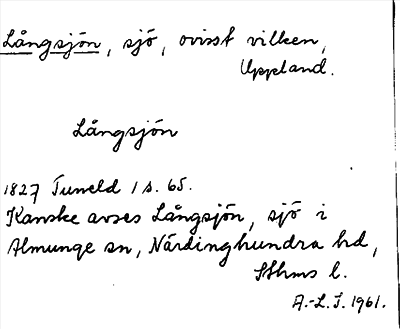 Långsjön, sjö, ovisst vilken,
Uppland.
Långsjön
1827 Tuneld 1 s. 65.
Kanske avses Långsjön, sjö i
Almunge sn, Närdinghundra hd,
Sthms l.
A.-L. J. 1961.